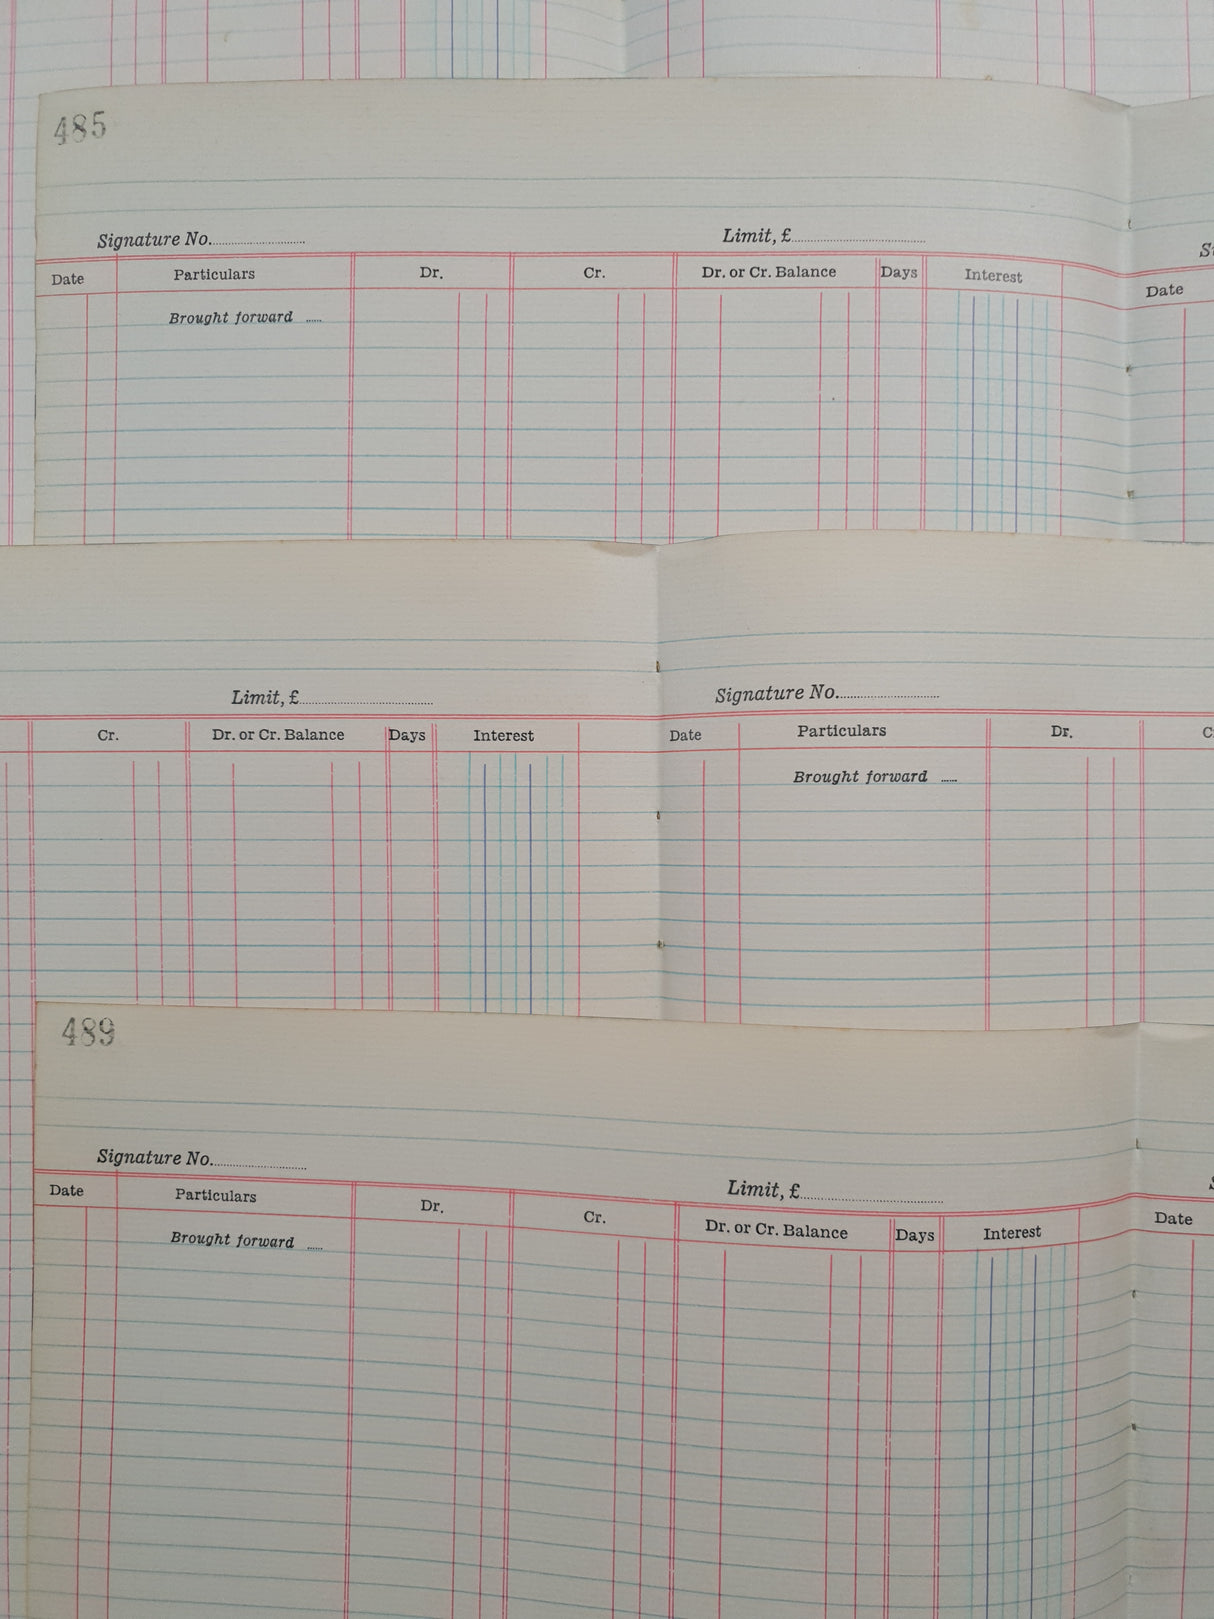 485
Signature No.
Limit, £
Date Particulars Dr. Cr. Dr. or Cr. Balance Days Interest Date
Brought forward
Limit, £ Signature No.
Cr. Dr. or Cr. Balance Days Interest Date Particulars Dr.
Brought forward
489
Signature No.
Limit, £
Date Particulars Dr. Cr. Dr. or Cr. Balance Days Interest Date
Brought forward